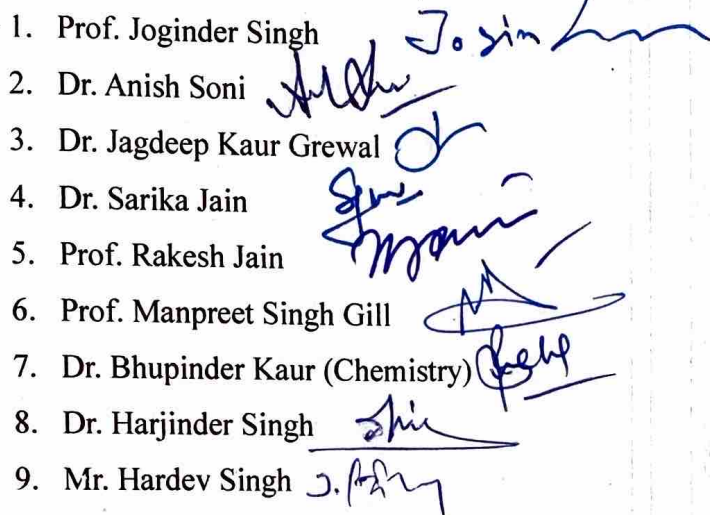 1. Prof. Joginder Singh
2. Dr. Anish Soni
3. Dr. Jagdeep Kaur Grewal
4. Dr. Sarika Jain
5. Prof. Rakesh Jain
6. Prof. Manpreet Singh Gill
7. Dr. Bhupinder Kaur (Chemistry)
8. Dr. Harjinder Singh
9. Mr. Hardev Singh